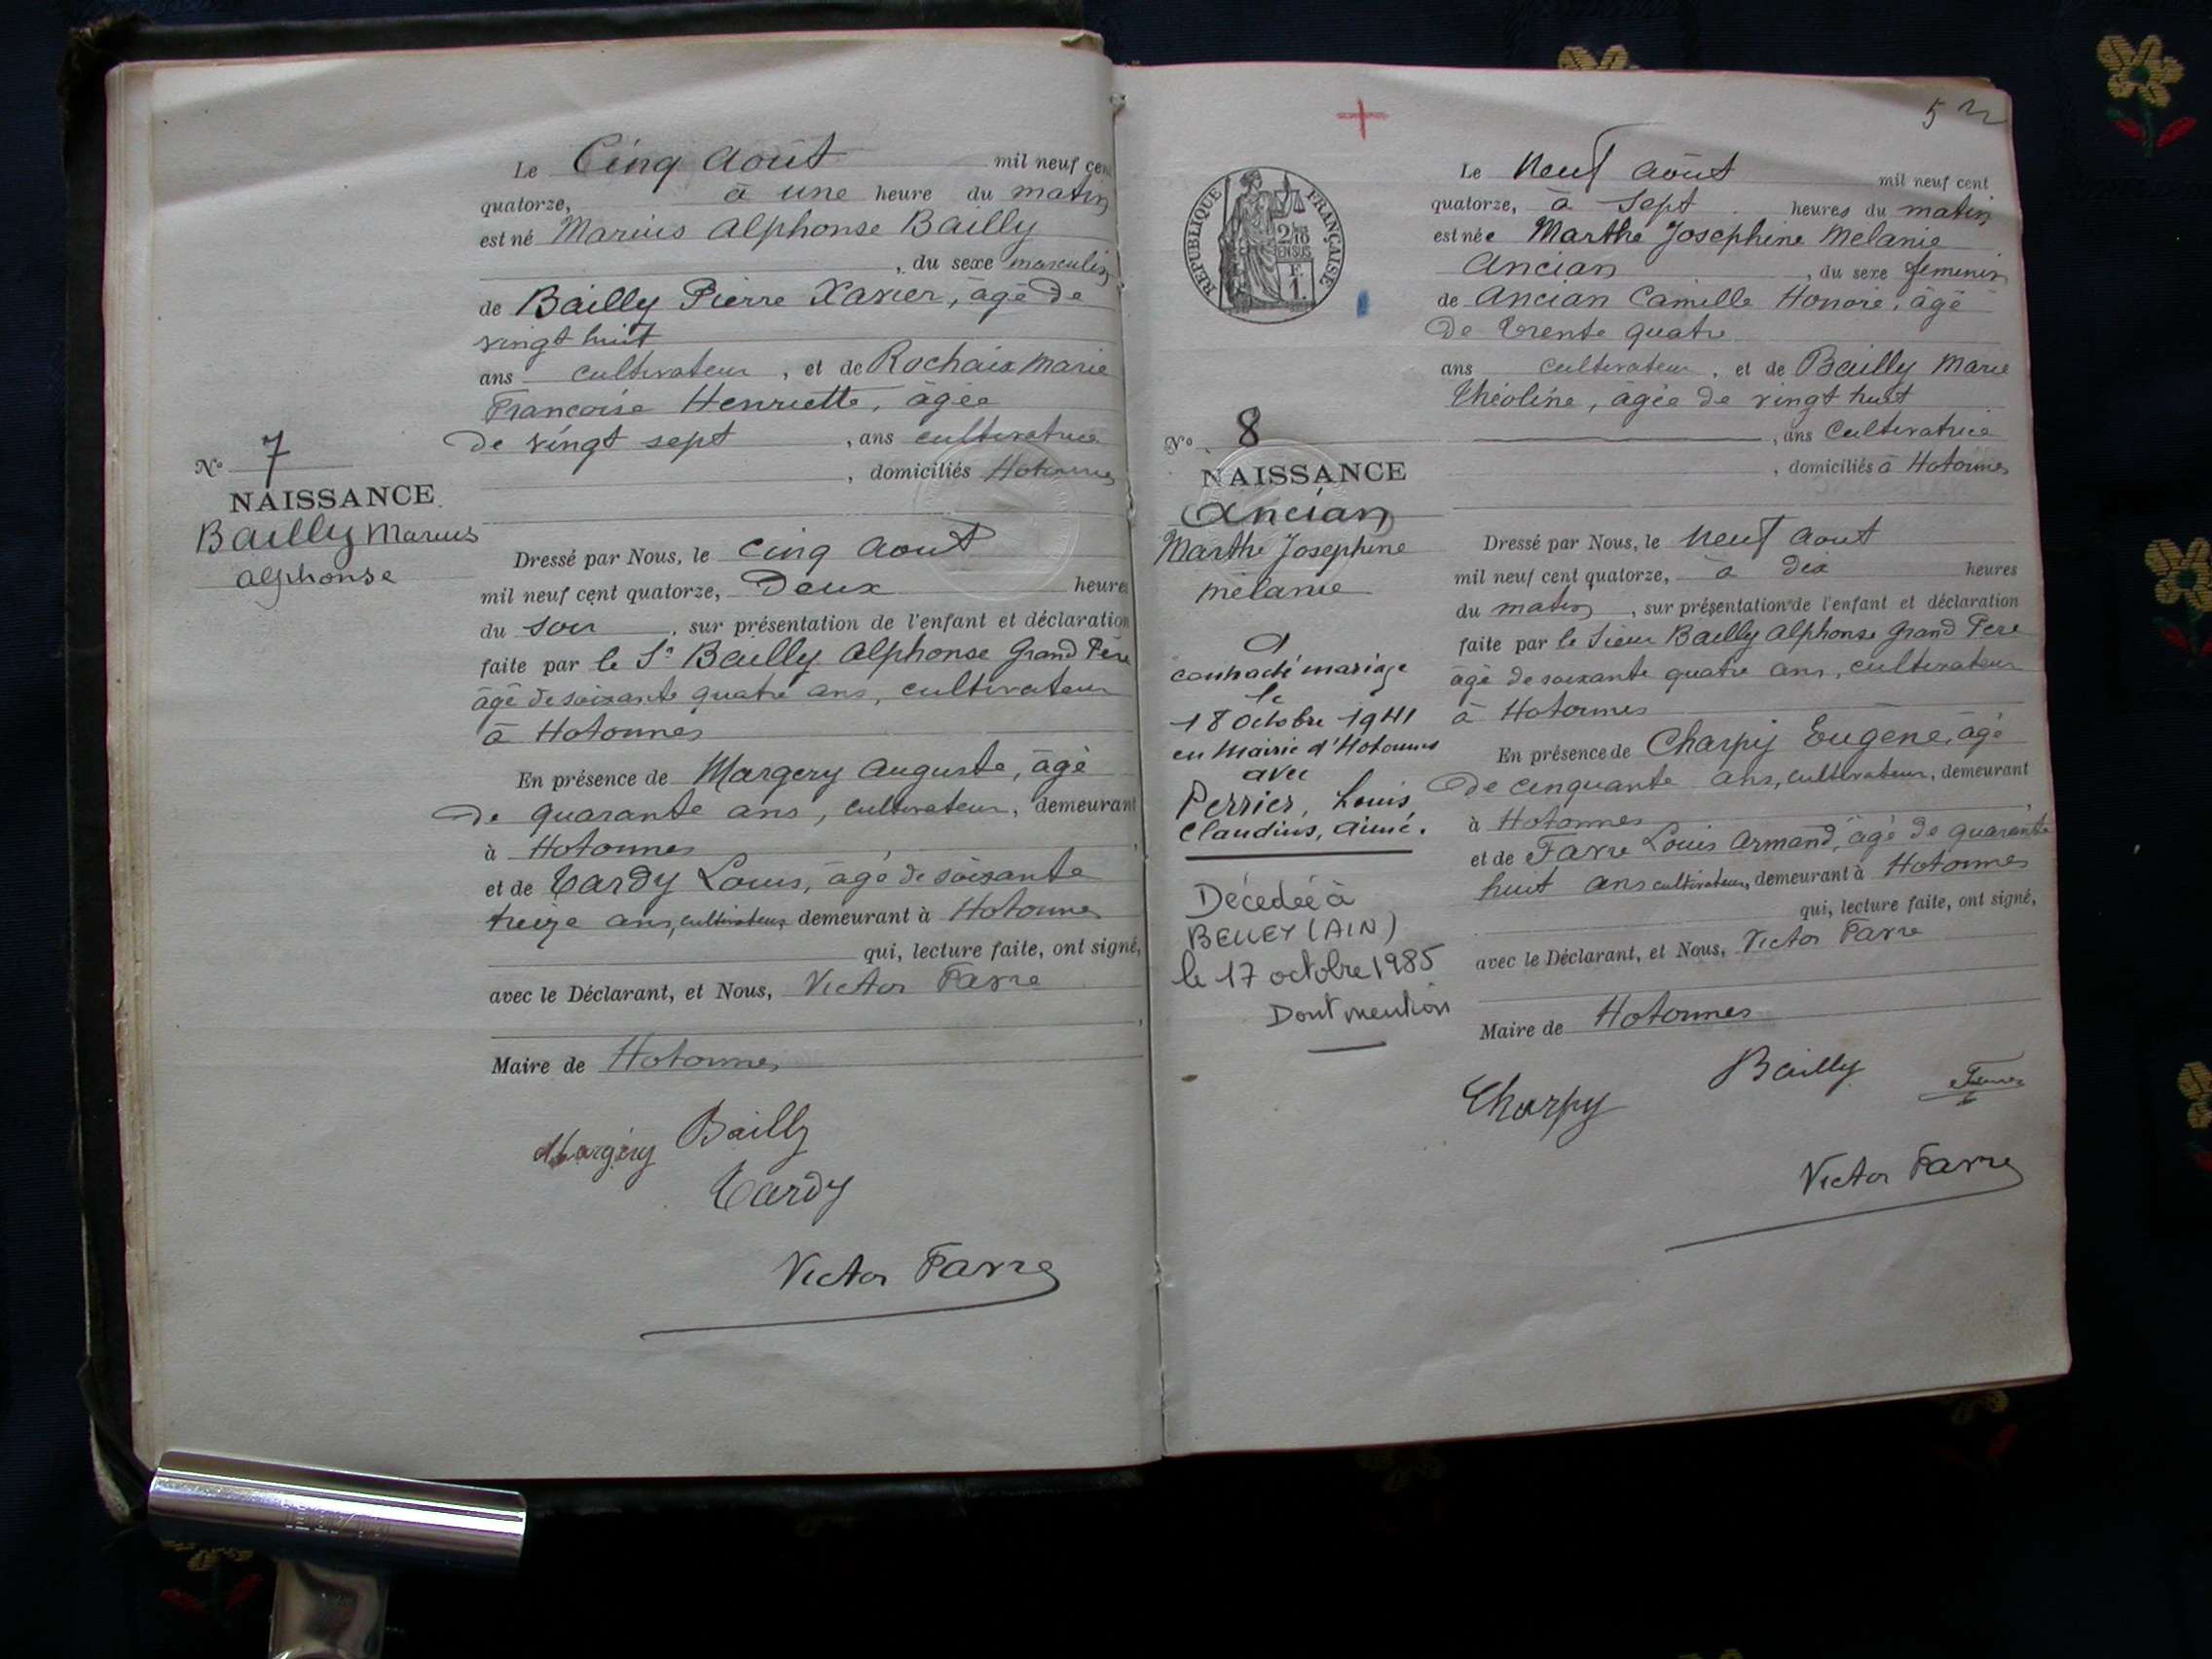 Le Cinq Août mil neuf cent
quatorze, à une heure du matin
est né Marius Alphonse Bailly
, du sexe masculin
de Bailly Pierre Xavier, âgé de
vingt huit
ans cultivateur, et de Rochaix Marie
Françoise Henriette, âgée
de vingt sept, ans cultivatrice
, domiciliés Hotonnes
N° 7
NAISSANCE
Bailly Marius
Alphonse
Dressé par Nous, le cinq Aout
mil neuf cent quatorze, Deux heures
du soir, sur présentation de l'enfant et déclaration
faite par le Sr Bailly Alphonse Grand Père
âgé de soixante quatre ans, cultivateur
à Hotonnes
En présence de Margery Auguste, âgé
de quarante ans, cultivateur, demeurant
à Hotonnes,
et de Tardy Louis, âgé de soixante
treize ans, cultivateur demeurant à Hotonnes
qui, lecture faite, ont signé,
avec le Déclarant, et Nous, Victor Favre
Maire de Hotonnes
Margery Bailly
Tardy
Victor Favre
52
Le Neuf Août mil neuf cent
quatorze, à sept heures du matin
est née Marthe Josephine Melanie
Ancian, du sexe feminin
de Ancian Camille Honoré, âgé
De trente quatre
ans cultivateur, et de Bailly Marie
Théoline, âgée de vingt huit
, ans Cultivatrice
, domiciliés à Hotonnes
REPUBLIQUE FRANÇAISE
2/10
EN SUS
F.
1.
N° 8
NAISSANCE
Ancian
Marthe Josephine
mélanie
a
contracté mariage
le
18 octobre 1941
en Mairie d'Hotonnes
avec
Perrier, Louis
Claudius, Aimé.
Décédée à
BELLEY (AIN)
le 17 octobre 1985
Dont mention
Dressé par Nous, le Neuf Aout
mil neuf cent quatorze, à dix heures
du matin, sur présentation de l'enfant et déclaration
faite par le Sieur Bailly Alphonse Grand Père
âgé de soixante quatre ans, cultivateur
à Hotonnes
En présence de Charpy Eugène, âgé
de cinquante ans, cultivateur, demeurant
à Hotonnes,
et de Favre Louis Armand, âgé de quarante
huit ans cultivateur, demeurant à Hotonnes
qui, lecture faite, ont signé,
avec le Déclarant, et Nous, Victor Favre
Maire de Hotonnes
Charpy Bailly Favre
Victor Favre